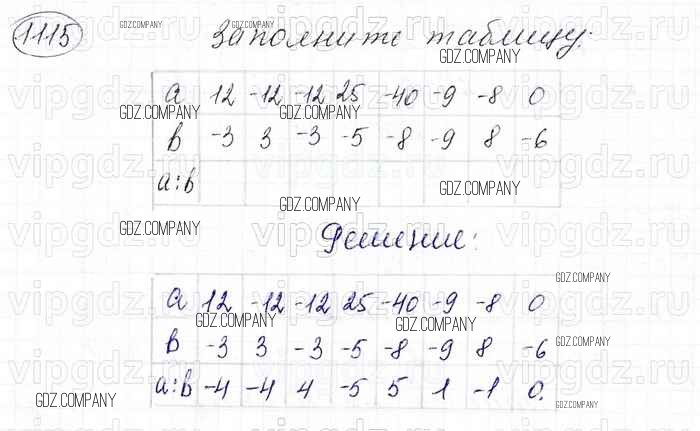 1115 Заполните таблицу:
a 12 -12 -12 25 -40 -9 -8 0
b -3 3 -3 -5 -8 -9 8 -6
a:b
Решение:
a 12 -12 -12 25 -40 -9 -8 0
b -3 3 -3 -5 -8 -9 8 -6
a:b -4 -4 4 -5 5 1 -1 0.
GDZ.COMPANY
vipgdz.ru